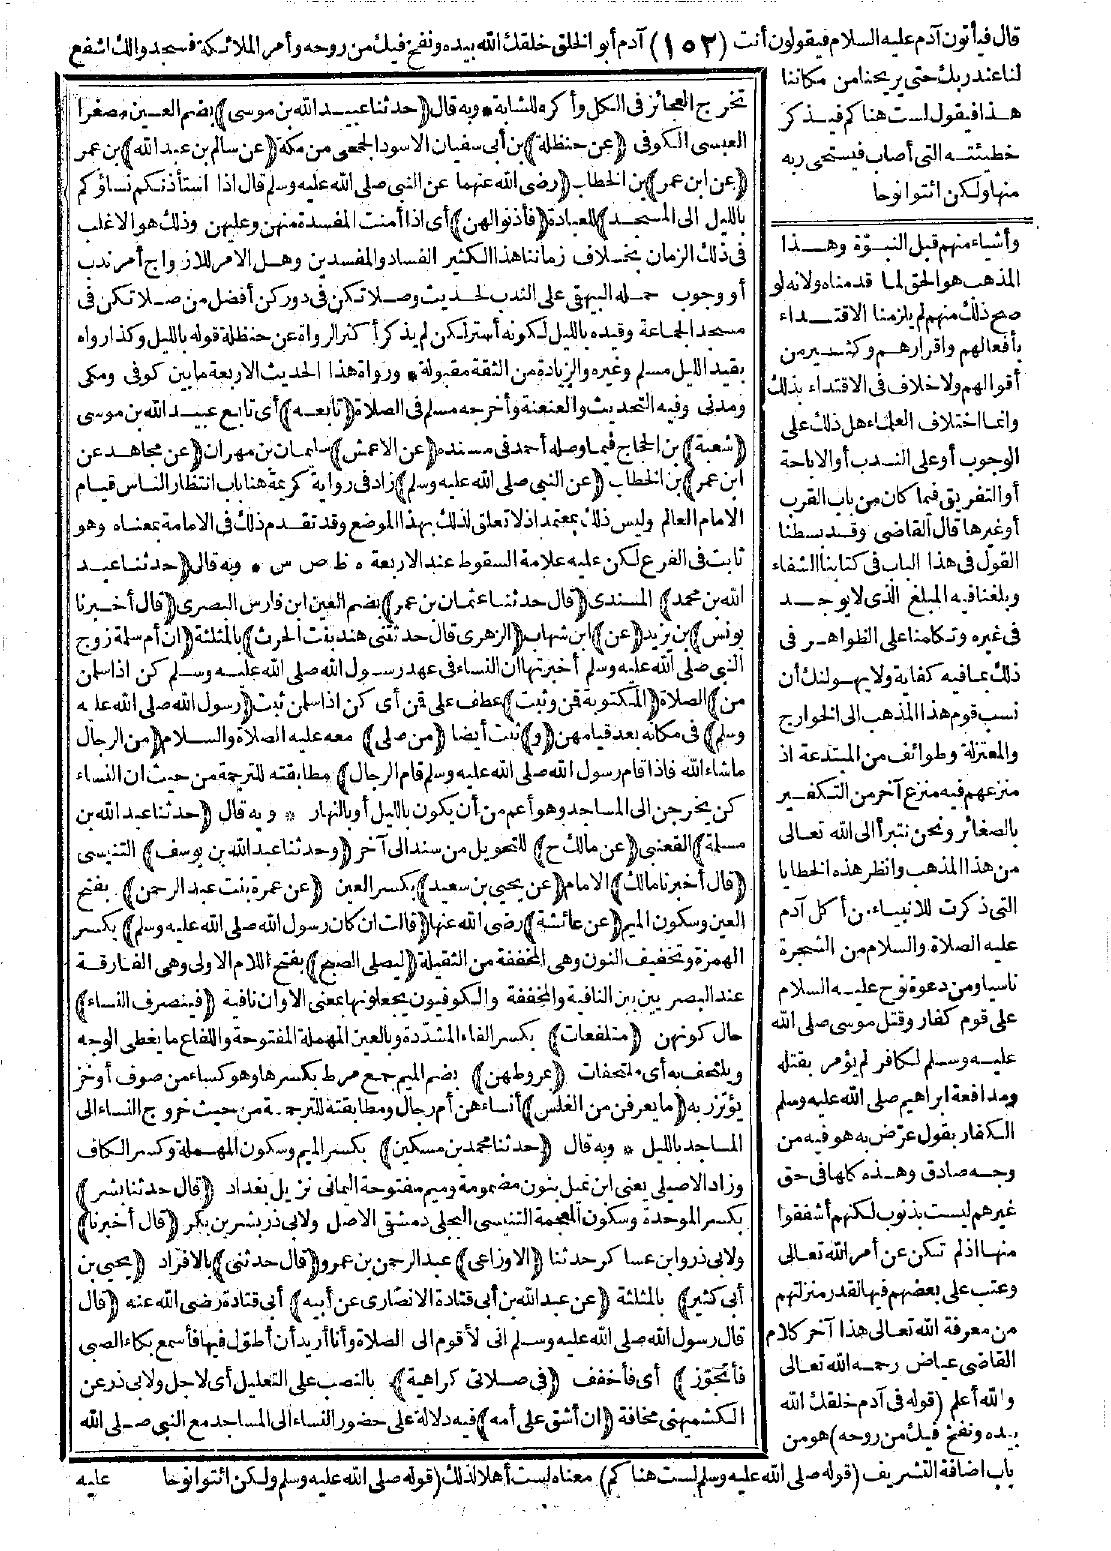 قال فيأتون آدم عليه السلام فيقولون أنت (١٥٢) آدم أبو الخلق خلقك الله بيده ونفخ فيك من روحه وأمر الملائكة فسجدوا لك اشفع
لنا عند ربك حتى يريحنا من مكاننا
هذا فيقول لست هنا كم فيذكر
خطيئته التى أصاب فيستحى ربه
منها ولكن ائتوا نوحا
وأشياء منهم قبل النبوّة وهذا
المذهب هو الحق لما قدمناه ولانه لو
صح ذلك منهم لم يلزمنا الاقتداء
بأفعالهم واقرارهم وكثير من
أقوالهم ولا خلاف فى الاقتداء بذلك
وانما اختلاف العلماء هل ذلك على
الوجوب أو على الندب أو الاباحة
أو التفريق فيما كان من باب القرب
أو غيرها قال القاضى وقد بسطنا
القول فى هذا الباب فى كتابنا الشفاء
وبلغنا فيه المبلغ الذى لا يوجد
فى غيره وتكلمنا على الظواهر فى
ذلك بما فيه كفاية ولا يهولنك أن
نسب قوم هذا المذهب الى الخوارج
والمعتزلة وطوائف من المبتدعة اذ
منزعهم فيه منزع آخر من التكفير
بالصغائر ونحن نتبرأ الى الله تعالى
من هذا المذهب وانظر هذه الخطايا
التى ذكرت للانبياء من أكل آدم
عليه الصلاة والسلام من الشجرة
ناسيا ومن دعوة نوح عليه السلام
على قوم كفار وقتل موسى صلى الله
عليه وسلم لكافر لم يؤمر بقتله
ومدافعة ابراهيم صلى الله عليه وسلم
الكفار بقول عرّض به هو فيه من
وجه صادق وهذه كلها فى حق
غيرهم ليست بذنوب لكنهم أشفقوا
منها اذ لم تكن عن أمر الله تعالى
وعتب على بعضهم فيها لقدر منزلتهم
من معرفة الله تعالى هذا آخر كلام
القاضى عياض رحمه الله تعالى
والله أعلم (قوله فى آدم خلقك الله
بيده ونفخ فيك من روحه) هو من
باب اضافة التشريف (قوله صلى الله عليه وسلم لست هنا كم) معناه لست أهلا لذلك (قوله صلى الله عليه وسلم ولكن ائتوا نوحا عليه
تخرج العجائز فى الكل وأكره للشابة * وبه قال (حدثنا عبيد الله بن موسى) بضم العين مصغرا
العبسى الكوفى (عن حنظلة) بن أبى سفيان الاسود الجمحى من مكة (عن سالم بن عبد الله) بن عمر
(عن ابن عمر) بن الخطاب (رضى الله عنهما عن النبى صلى الله عليه وسلم قال اذا استأذنكم نساؤكم
بالليل الى المسجد) للعبادة (فأذنوا لهن) أى اذا أمنت المفسدة منهن وعليهن وذلك هو الاغلب
فى ذلك الزمان بخلاف زماننا هذا الكثير الفساد والمفسدين وهل الامر للازواج أمر ندب
أو وجوب حمله البيهقى على الندب لحديث وصلاتكن فى دوركن أفضل من صلاتكن فى
مسجد الجماعة وقيده بالليل لكونه أستر لكن لم يذكر أكثر الرواة عن حنظلة قوله بالليل وكذا رواه
بقيد الليل مسلم وغيره والزيادة من الثقة مقبولة * ورواة هذا الحديث الاربعة ما بين كوفى ومكى
ومدنى وفيه التحديث والعنعنة وأخرجه مسلم فى الصلاة (تابعه) أى تابع عبيد الله بن موسى
(شعبة) بن الحجاج فيما وصله أحمد فى مسنده (عن الاعمش) سليمان بن مهران (عن مجاهد عن
ابن عمر) بن الخطاب (عن النبى صلى الله عليه وسلم) زاد فى رواية كريمة هنا باب انتظار الناس قيام
الامام العالم وليس ذلك بمعتمد اذ لا تعلق لذلك بهذا الموضع وقد تقدم ذلك فى الامامة بمعناه وهو
ثابت فى الفرع لكن عليه علامة السقوط عند الاربعة ه ظ ص س * وبه قال (حدثنا عبد
الله بن محمد) المسندى (قال حدثنا عثمان بن عمر) بضم العين ابن فارس البصرى (قال أخبرنا
يونس) بن يزيد (عن) ابن شهاب (الزهرى قال حدثتنى هند بنت الحرث) بالمثلثة (ان أم سلمة زوج
النبى صلى الله عليه وسلم أخبرتها ان النساء فى عهد رسول الله صلى الله عليه وسلم كن اذا سلمن
من) الصلاة (المكتوبة قمن وثبت) عطف على قمن أى كن اذا سلمن ثبت (رسول الله صلى الله عليه
وسلم) فى مكانه بعد قيامهن (و) ثبت أيضا (من صلى) معه عليه الصلاة والسلام (من الرجال
ما شاء الله فاذا قام رسول الله صلى الله عليه وسلم قام الرجال) مطابقته للترجمة من حيث ان النساء
كن يخرجن الى المساجد وهو أعم من أن يكون بالليل أو بالنهار * وبه قال (حدثنا عبد الله بن
مسلمة) القعنبى (عن مالك ح) للتحويل من سند الى آخر (وحدثنا عبد الله بن يوسف) التنيسى
(قال أخبرنا مالك) الامام (عن يحيى بن سعيد) بكسر العين (عن عمرة بنت عبد الرحمن) بفتح
العين وسكون الميم (عن عائشة) رضى الله عنها (قالت ان كان رسول الله صلى الله عليه وسلم) بكسر
الهمزة وتخفيف النون وهى المخففة من الثقيلة (ليصلى الصبح) بفتح اللام الاولى وهى الفارقة
عند البصريين بين النافية والمخففة والكوفيون يجعلونها بمعنى الا وان نافية (فينصرف النساء)
حال كونهن (متلفعات) بكسر الفاء المشدّدة وبالعين المهملة المفتوحة واللفاع ما يغطى الوجه
ويلتحف به أى ملتحفات (بمروطهن) بضم الميم جمع مرط بكسرها وهو كساء من صوف أو خز
يؤتزر به (ما يعرفن من الغلس) أنساء هن أم رجال ومطابقته للترجمة من حيث خروج النساء الى
المساجد بالليل * وبه قال (حدثنا محمد بن مسكين) بكسر الميم وسكون المهملة وكسر الكاف
وزاد الاصيلى يعنى ابن نميل بنون مضمومة وميم مفتوحة اليمانى نزيل بغداد (قال حدثنا بشر)
بكسر الموحدة وسكون المعجمة التنيسى البجلى دمشقى الاصل ولابى ذر بشر بن بكر (قال أخبرنا)
ولابى ذر وابن عساكر حدثنا (الاوزاعى) عبد الرحمن بن عمرو (قال حدثنى) بالافراد (يحيى بن
أبى كثير) بالمثلثة (عن عبد الله بن أبى قتادة الانصارى عن أبيه) أبى قتادة رضى الله عنه (قال
قال رسول الله صلى الله عليه وسلم انى لأقوم الى الصلاة وأنا أريد أن أطوّل فيها فأسمع بكاء الصبى
فأتجوّز) أى فأخفف (فى صلاتى كراهية) بالنصب على التعليل أى لاجل ولابى ذر عن
الكشميهنى مخافة (ان أشق على أمه) فيه دلالة على حضور النساء الى المساجد مع النبى صلى الله